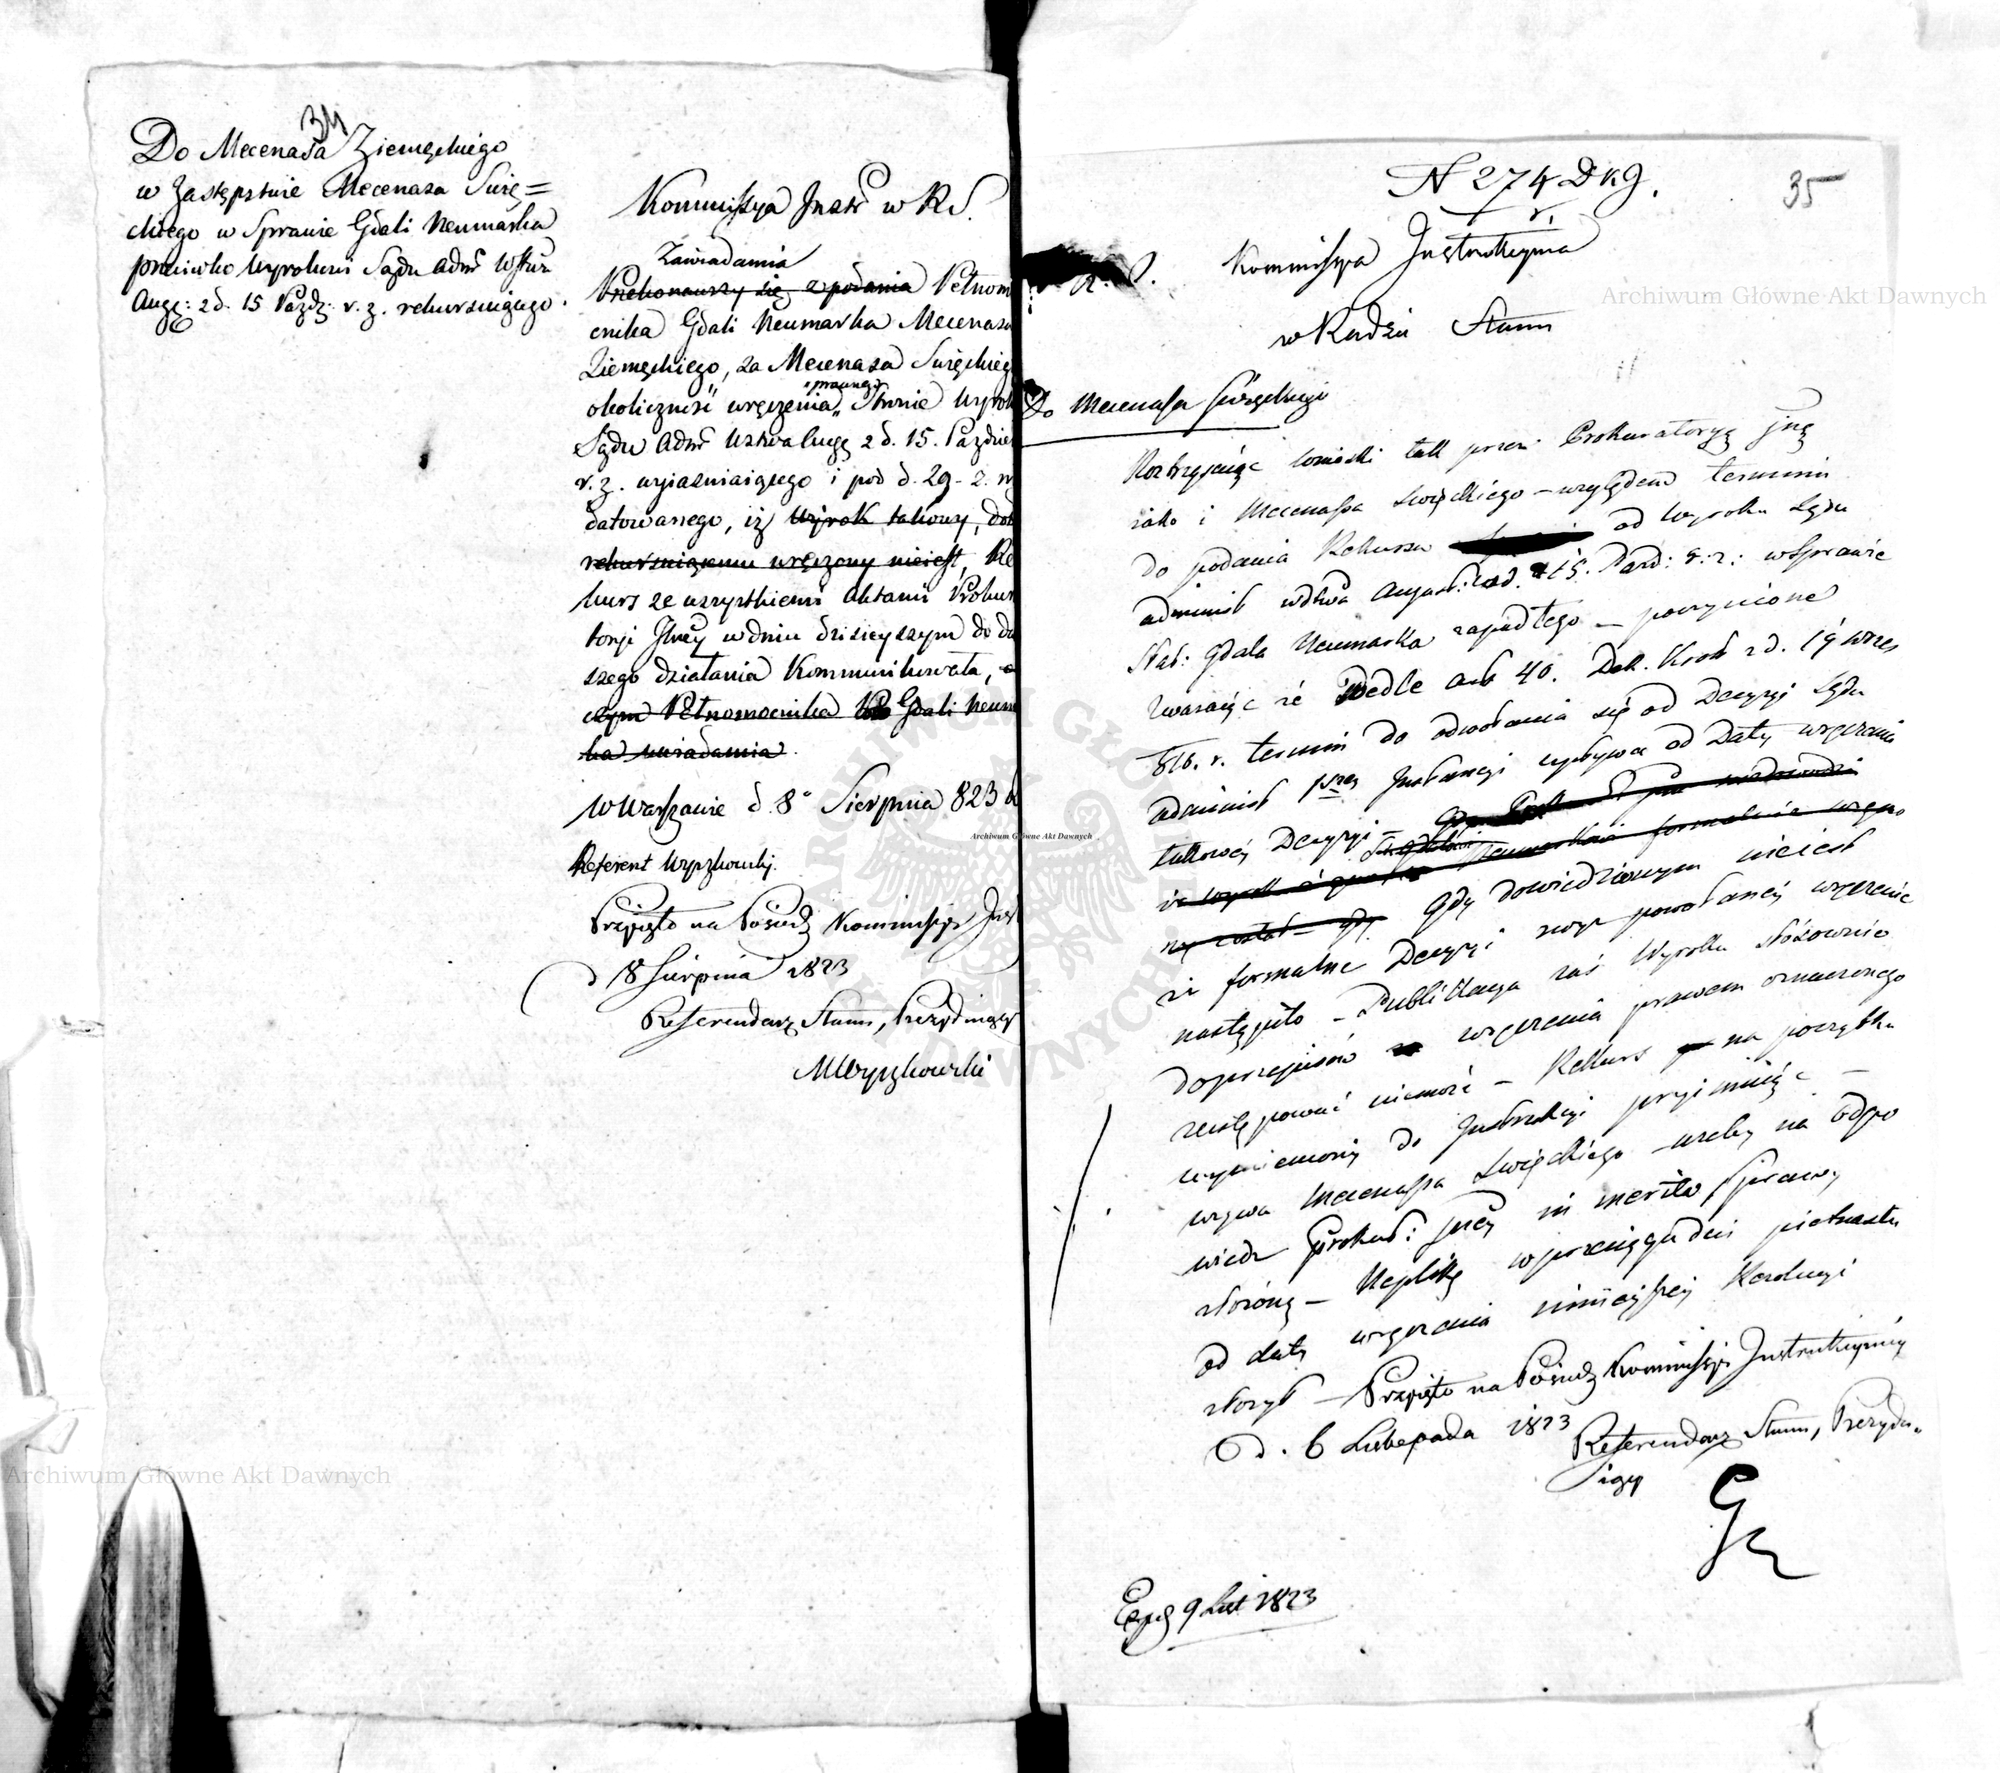 34
Do Mecenasa Ziemęckiego
w Zastępstwie Mecenasa Swię=
ckiego w Sprawie Gdali Neumarka
przeciwko Wyrokowi Sądu Adm Wdztwa
Aug: z d. 15 Paźdz: r. z. rekursuiącego.
Kommissya Instr w R S.
Zawiadamia
Przekonawszy się z podania Pełnom
cnika Gdali Neumarka Mecenasa
Ziemęckiego, za Mecenasa Swięckieg
okoliczność wręczenia „prawnego„ Stronie Wyrok
Sądu Adm Wztwa Augg z d. 15. Paździe
r. z. wyiasniaiącego i pod d. 29 - z. m
datowanego, iż Wyrok takowy, dot
rekursuiącemu wręczony nieiest, Re
kurs ze wszystkiemi Aktami Prokur
toryi Jlney w dniu dzisieyszym do da
szego działania Kommunikowała, o
czym Pełnomocnika Gdali Neum
ka uwiadamia.
w Warszawie d. 8° Sierpnia 823 r
Referent Wyszkowski.
Przyięto na Posiedz Kommissyi Inst
d 8 Sierpnia 1823
Referendarz Stanu, Prezyduiący
M Wyszkowski
N 274 D K G.
35
r.
R. S.
Kommissya Instrukcyina
w Radzie Stanu
Do Mecenassa Swięckiego
Roztrząsaiąc wnioski tak przez Prokuratoryą Jną
iako i Mecenassa Swięckiego – względem terminu
do podania Rekursu od Wyroku Sądu
administ wdztwa August: z d. 15. Pazd: r. z: w Sprawie
Star: Gdala Neumarka zapadłego – poczynione
zwazaiąc ze Wedle art 40. Dek. Krol z d. 19 wrzes
1816. r. termin do odwołania się od Decyzyi Sądu
administ 1szey Instancyi upływa od Daty wręczenia
takowey Decyzyi –
Gdy dowiedzionym nieiest
iz formalne Decyzyi wyz powołaney wręczenie
nastąpiło – Publikacya zaś Wyroku stosownie
do przepisów wręczenia prawem oznaczonego
zastępować niemoże – Rekurs na początku
wymieniony do Instrukcyi przyimuiąc –
wzywa Mecenassa Swięckiego – azeby na odpo
wiedz Prokur: Jney in merito Sprawy
złożoną – Replikę w przeciągu dni pietnastu
od daty wręczenia ninieyszey Rezolucyi
złozył – Przyięto na Posiedz Kommissyi Instrukcyiney
d. 6 Listopada 1823
Referendarz Stanu, Prezydu„
iący
Exped 9 List 1823
Archiwum Główne Akt Dawnych
Archiwum Główne Akt Dawnych
Archiwum Główne Akt Dawnych